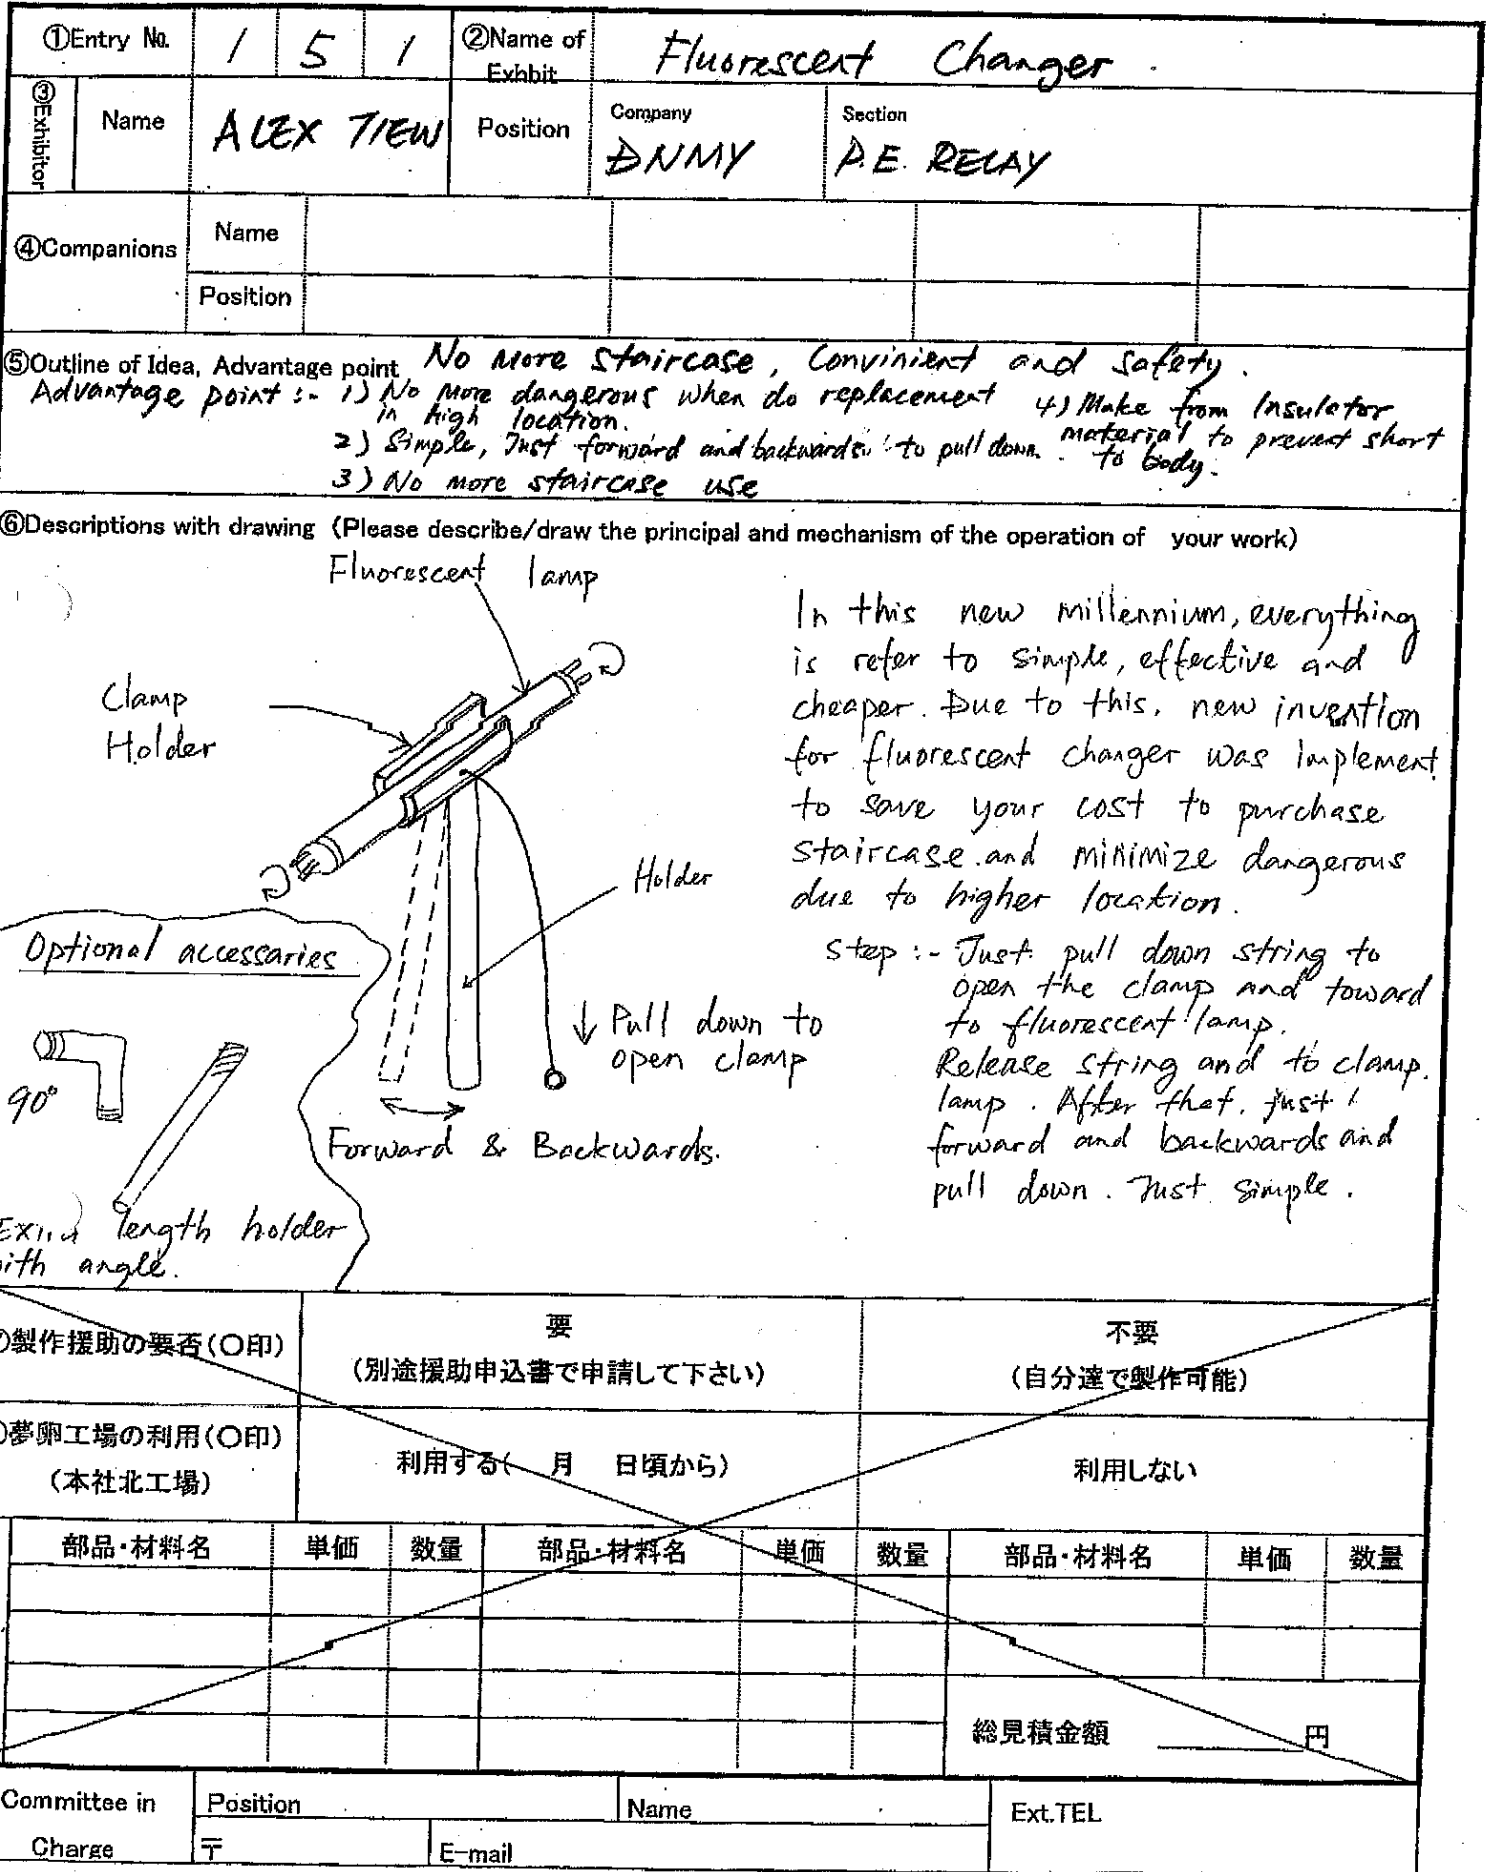 ①Entry No. 1 5 1 ②Name of Exhbit Fluorescent Changer.
③Exhibitor Name ALEX TIEW Position Company DNMY Section P.E. RELAY
④Companions Name
Position
⑤Outline of Idea, Advantage point No More Staircase, Convinient and Safety.
Advantage point :- 1) No more dangerous when do replacement
in high location.
2) Simple, Just forward and backwards to pull down.
3) No more staircase use
4) Make from Insulator
material to prevent short
to body.
⑥Descriptions with drawing (Please describe/draw the principal and mechanism of the operation of your work)
Fluorescent lamp
Clamp
Holder
Holder
↓ Pull down to
open clamp
Forward & Backwards.
Optional accessaries
90°
length holder
angle.
In this new millennium, everything
is refer to simple, effective and
cheaper. Due to this, new invention
for fluorescent changer was implement
to save your cost to purchase
staircase and minimize dangerous
due to higher location.
Step :- Just pull down string to
open the clamp and toward
to fluorescent lamp.
Release string and to clamp
lamp. After that, just
forward and backwards and
pull down. Just simple.
製作援助の要否(〇印) 要 不要
(別途援助申込書で申請して下さい) (自分達で製作可能)
夢卵工場の利用(〇印)
(本社北工場) 利用する( 月 日頃から) 利用しない
部品・材料名 単価 数量 部品・材料名 単価 数量 部品・材料名 単価 数量
総見積金額 円
Committee in Charge Position Name Ext.TEL
〒 E-mail